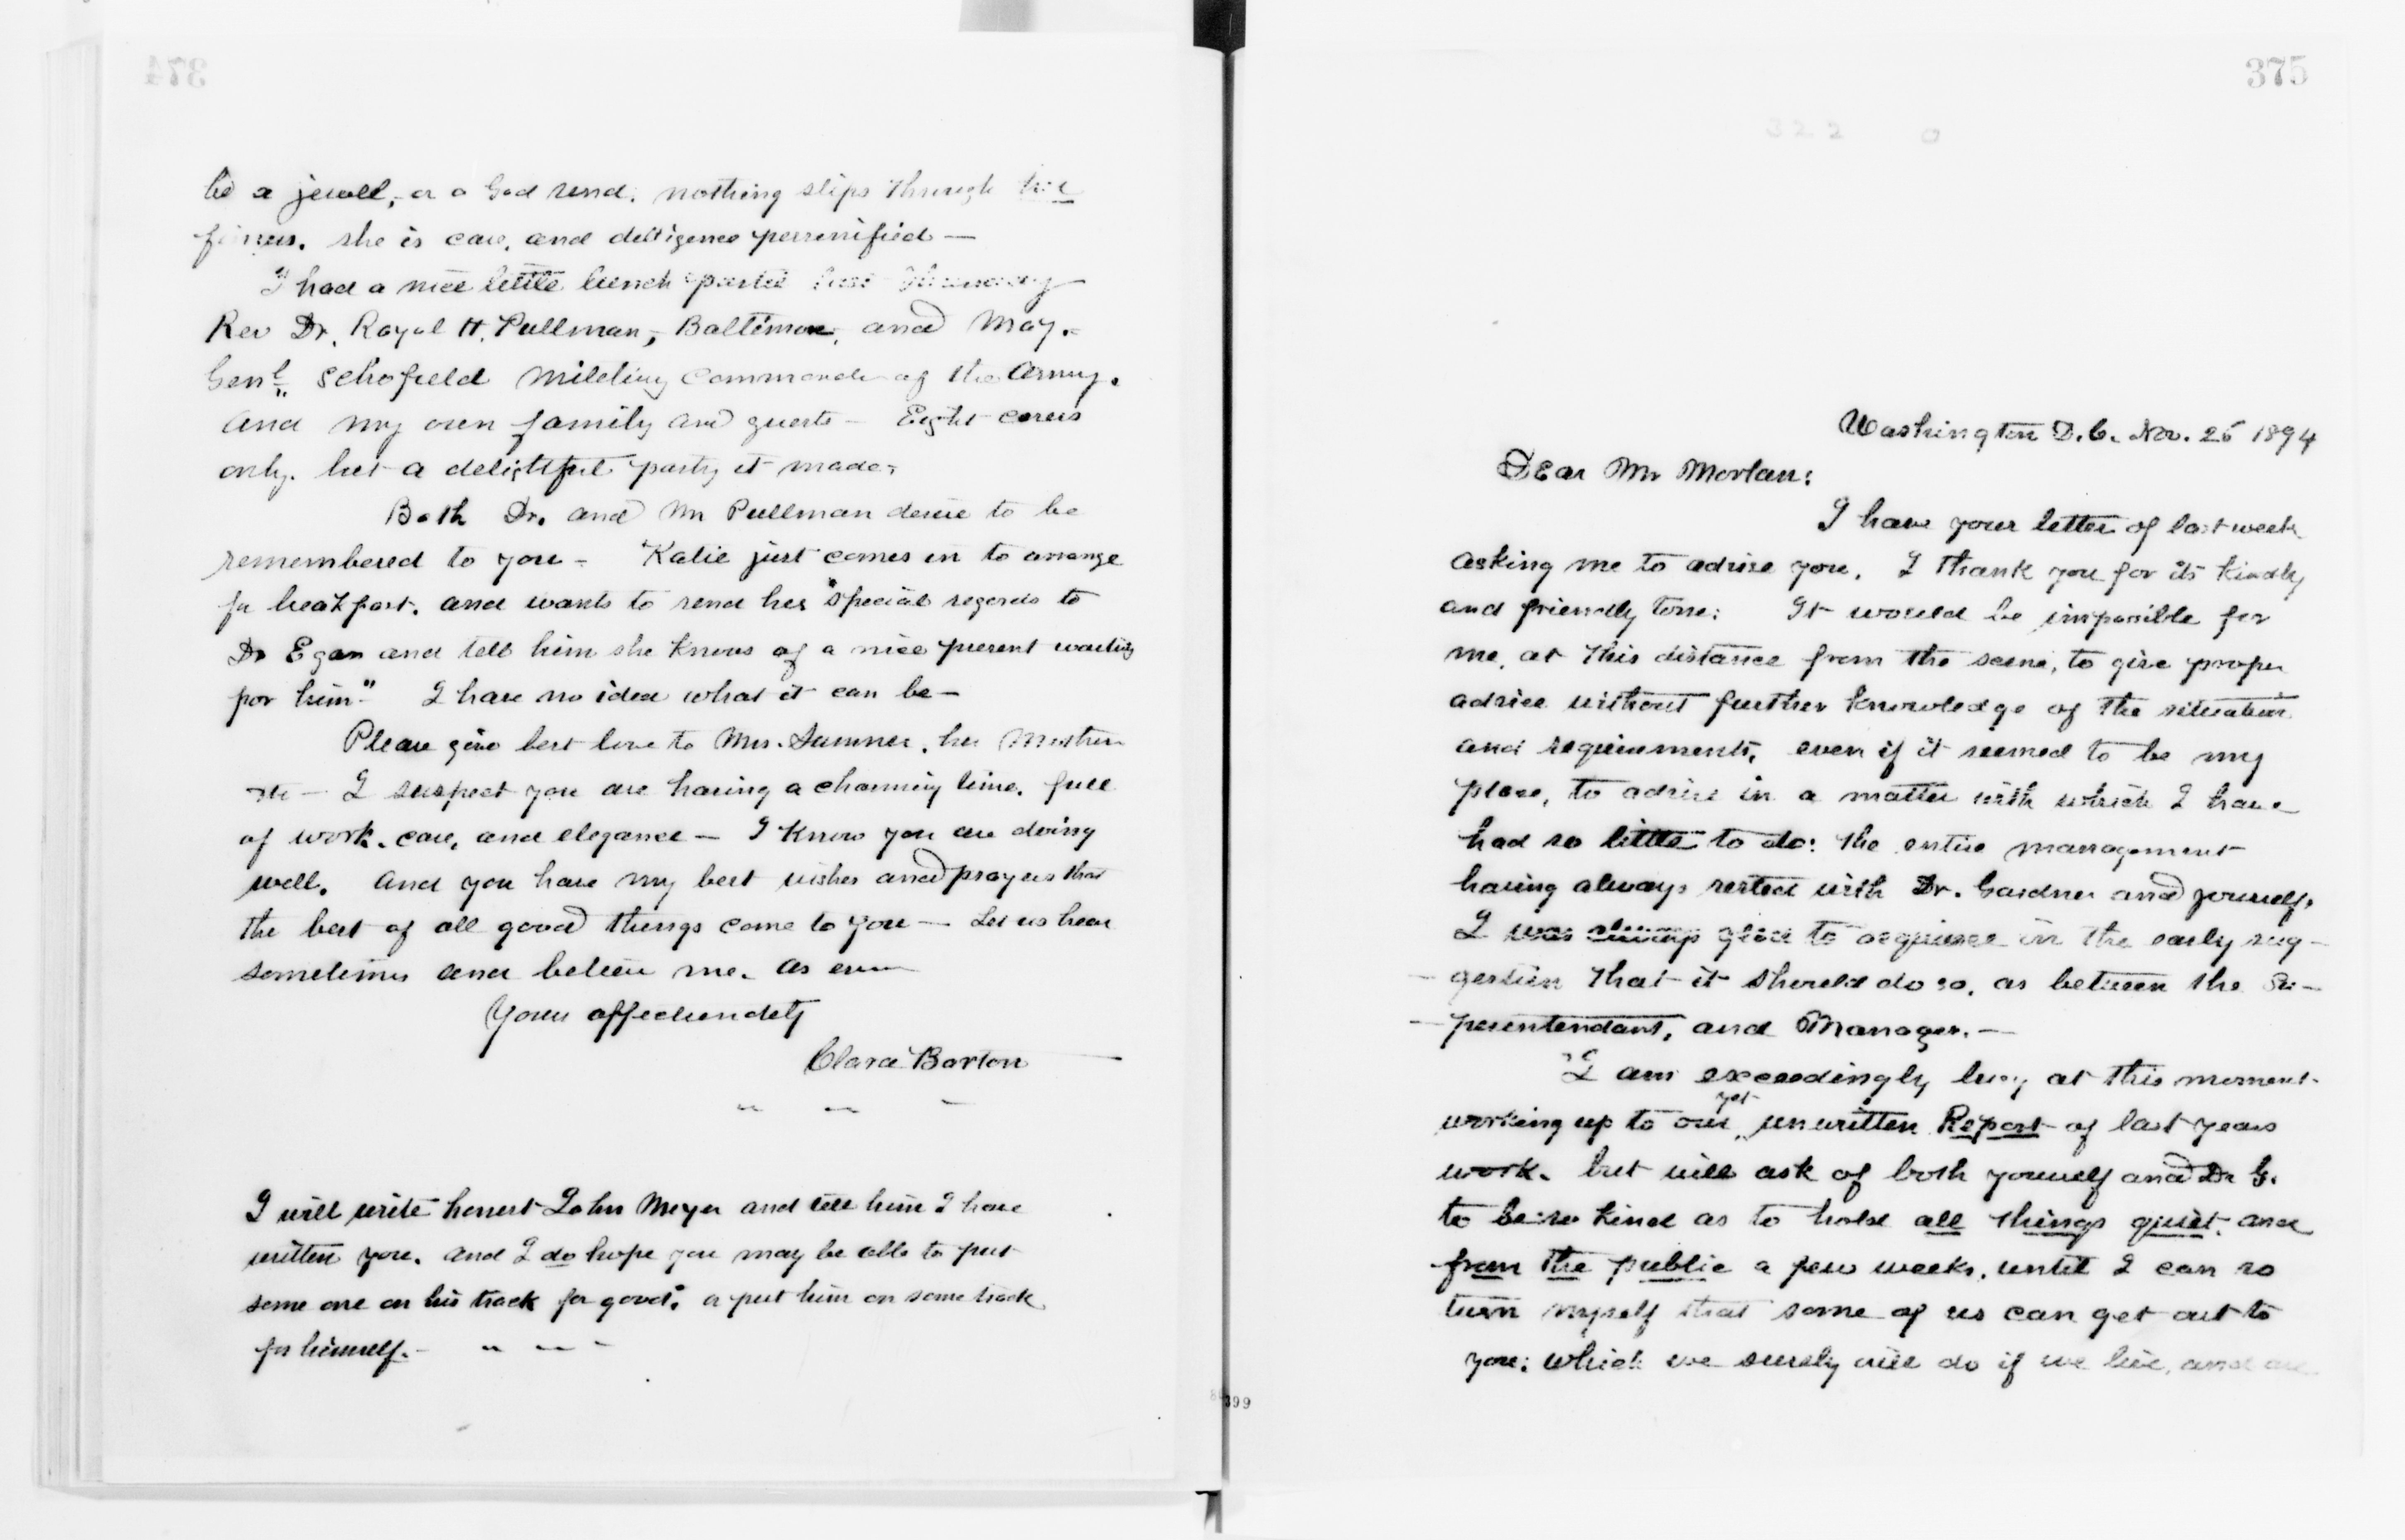 374
be a jewell, or a God send. nothing slips through her
fingers. she is care, and dilligence personified —
I had a nice little lunch partie last Thursday
Rev Dr. Royal H. Pullman, Baltimore, and Maj.
Genl. Schofield Military Commander of the Army.
and my own family and guests — Eight covers
only. but a delightful party it made.
Both Dr. and Mr Pullman desire to be
remembered to you — Katie just comes in to arrange
for breakfast. and wants to send her "special regards to
Dr Egan and tell him she knows of a nice present waiting
for him" I have no idea what it can be —
Please give best love to Mrs. Sumner, her
— I suspect you are having a charming time. full
of work. care, and elegance — I know you are doing
well. And you have my best wishes and prayers that
the best of all good things come to you — Let us hear
sometimes and believe me. as ever
Yours affectionately
Clara Barton
I will write honest John Meyer and tell him I have
written you. and I do hope you may be able to put
some one on his track for good. or put him on some track
for himself. —
375
322 0
Washington D.C. Nov. 26 1894
Dear Mr Morlan:
I have your letter of last week
asking me to advise you. I thank you for its kindly
and friendly tone: It would be impossible for
me, at this distance from the scene, to give proper
advice without further knowledge of the situation
and requirements, even if it seemed to be my
place, to advise in a matter with which I have
had so little to do: the entire management
having always rested with Dr. Gardner and yourself.
I was always glad to acquiesce in the early sug-
- gestion that it should do so, as between the Su-
- perintendant, and Manager. —
I am exceedingly busy at this moment.
yet
working up to our unwritten Report of last years
work. but will ask of both yourself and Dr G.
to be so kind as to hold all things quiet, and
from the public a few weeks. until I can so
turn myself that some of us can get out to
you: which we surely will do if we live, and are
80399